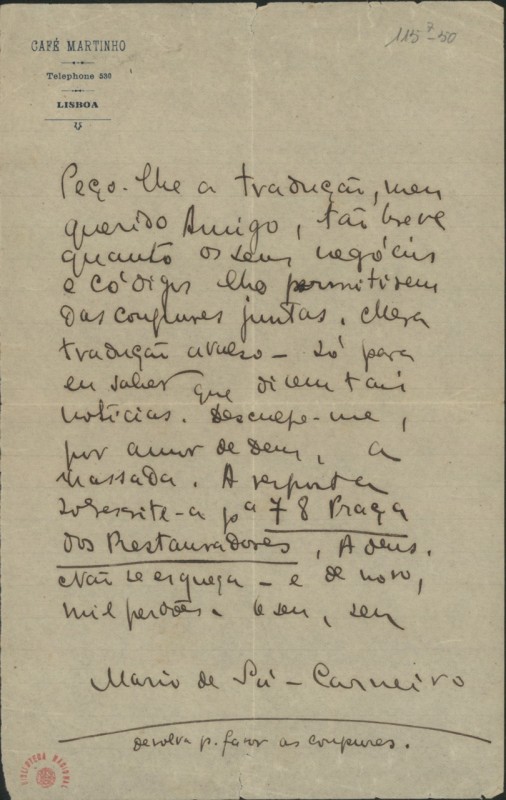 CAFÉ MARTINHO
Telephone 236
LISBOA
115⁷-50
Peço-lhe a tradução, meu
querido Amigo, tão breve
quanto os seus negócios
e códigos lho permitirem
das coupures juntas. Mera
tradução avulso - só para
eu saber que dizem tais
notícias. Desculpe-me,
por amor de Deus, a
massada. A resposta
sobrescrite-a pª 78 Praça
dos Restauradores, Adeus.
Não se esqueça - e de novo,
mil perdões. O seu, seu
Mario de Sá-Carneiro
devolva p. favor as coupures.
BIBLIOTECA NACIONAL